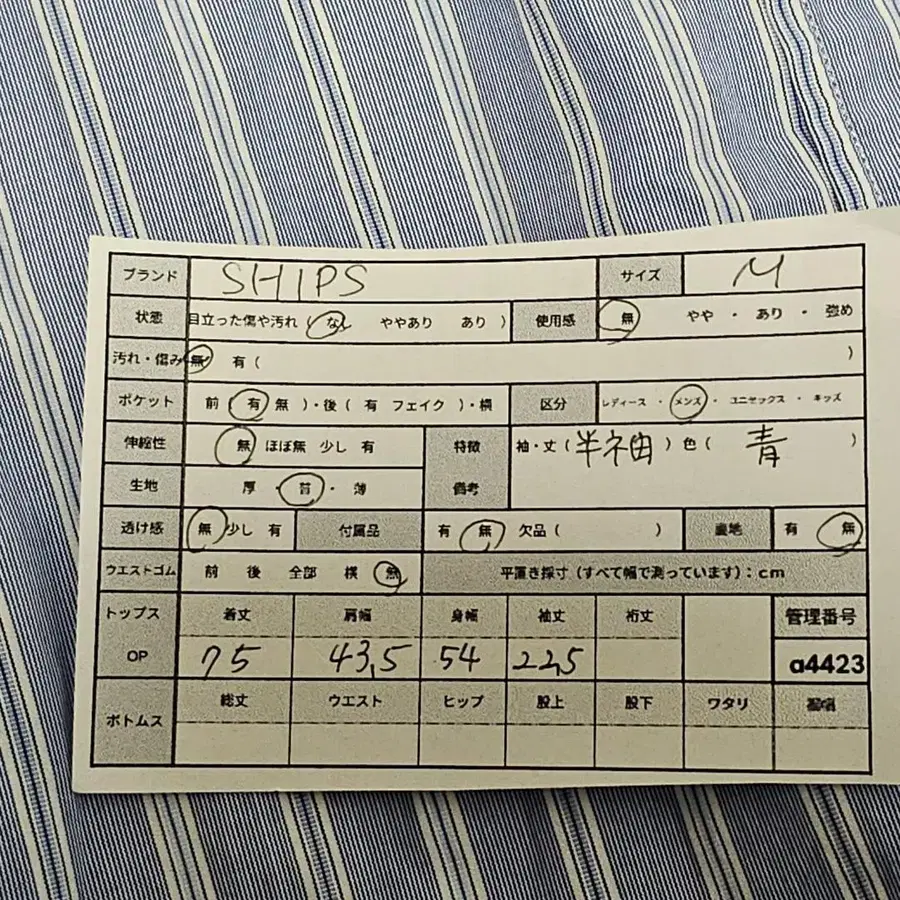 ブランド SHIPS サイズ M
状態 目立った傷や汚れ ( なし ややあり あり ) 使用感 無 やや ・ あり ・ 強め
汚れ・傷み 無 有 ( )
ポケット 前 ( 有 無 )・後 ( 有 フェイク )・横 区分 レディース ・ メンズ ・ ユニセックス ・ キッズ
伸縮性 無 ほぼ無 少し 有 特徴 袖・丈 ( 半袖 ) 色 ( 青 )
生地 厚 ・ 普 ・ 薄 備考
透け感 無 少し 有 付属品 有 無 欠品 ( ) 産地 有 無
ウエストゴム 前 後 全部 横 無 平置き採寸 (すべて幅で測っています) : cm
トップス 着丈 肩幅 身幅 袖丈 裄丈 管理番号
OP 75 43,5 54 22,5 a4423
ボトムス 総丈 ウエスト ヒップ 股上 股下 ワタリ